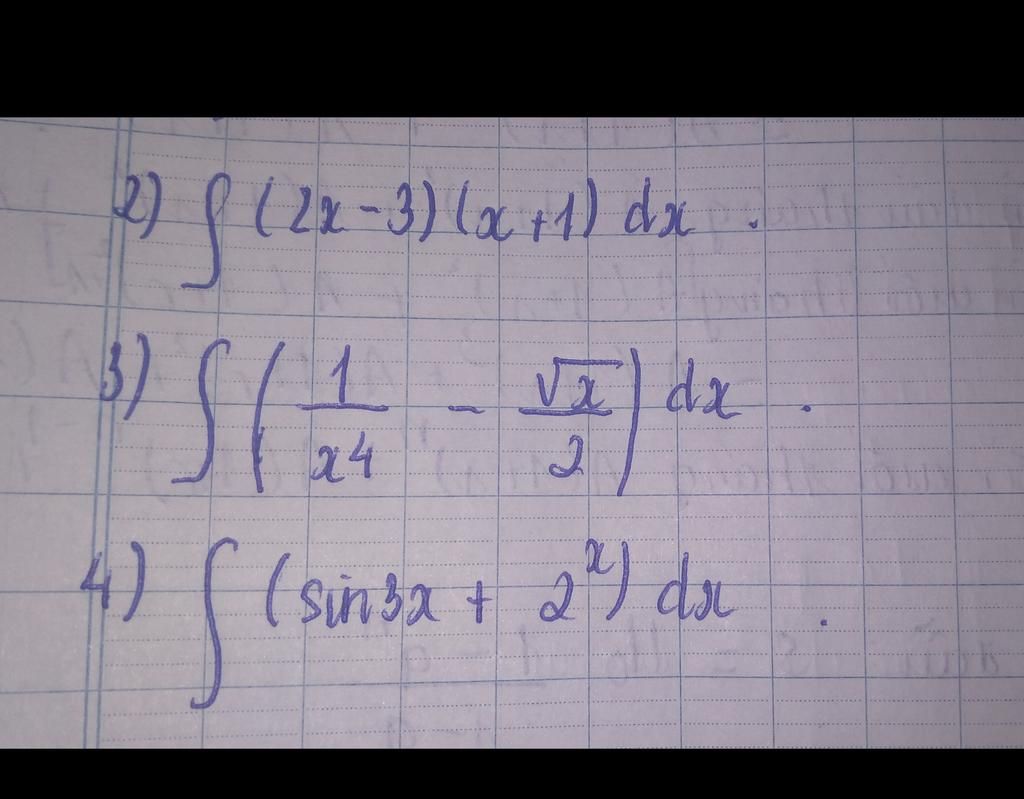 2) ∫ (2x-3)(x+1) dx .
3) ∫ (1/x4 - √x/2) dx .
4) ∫ (sin3x + 2^x) dx .